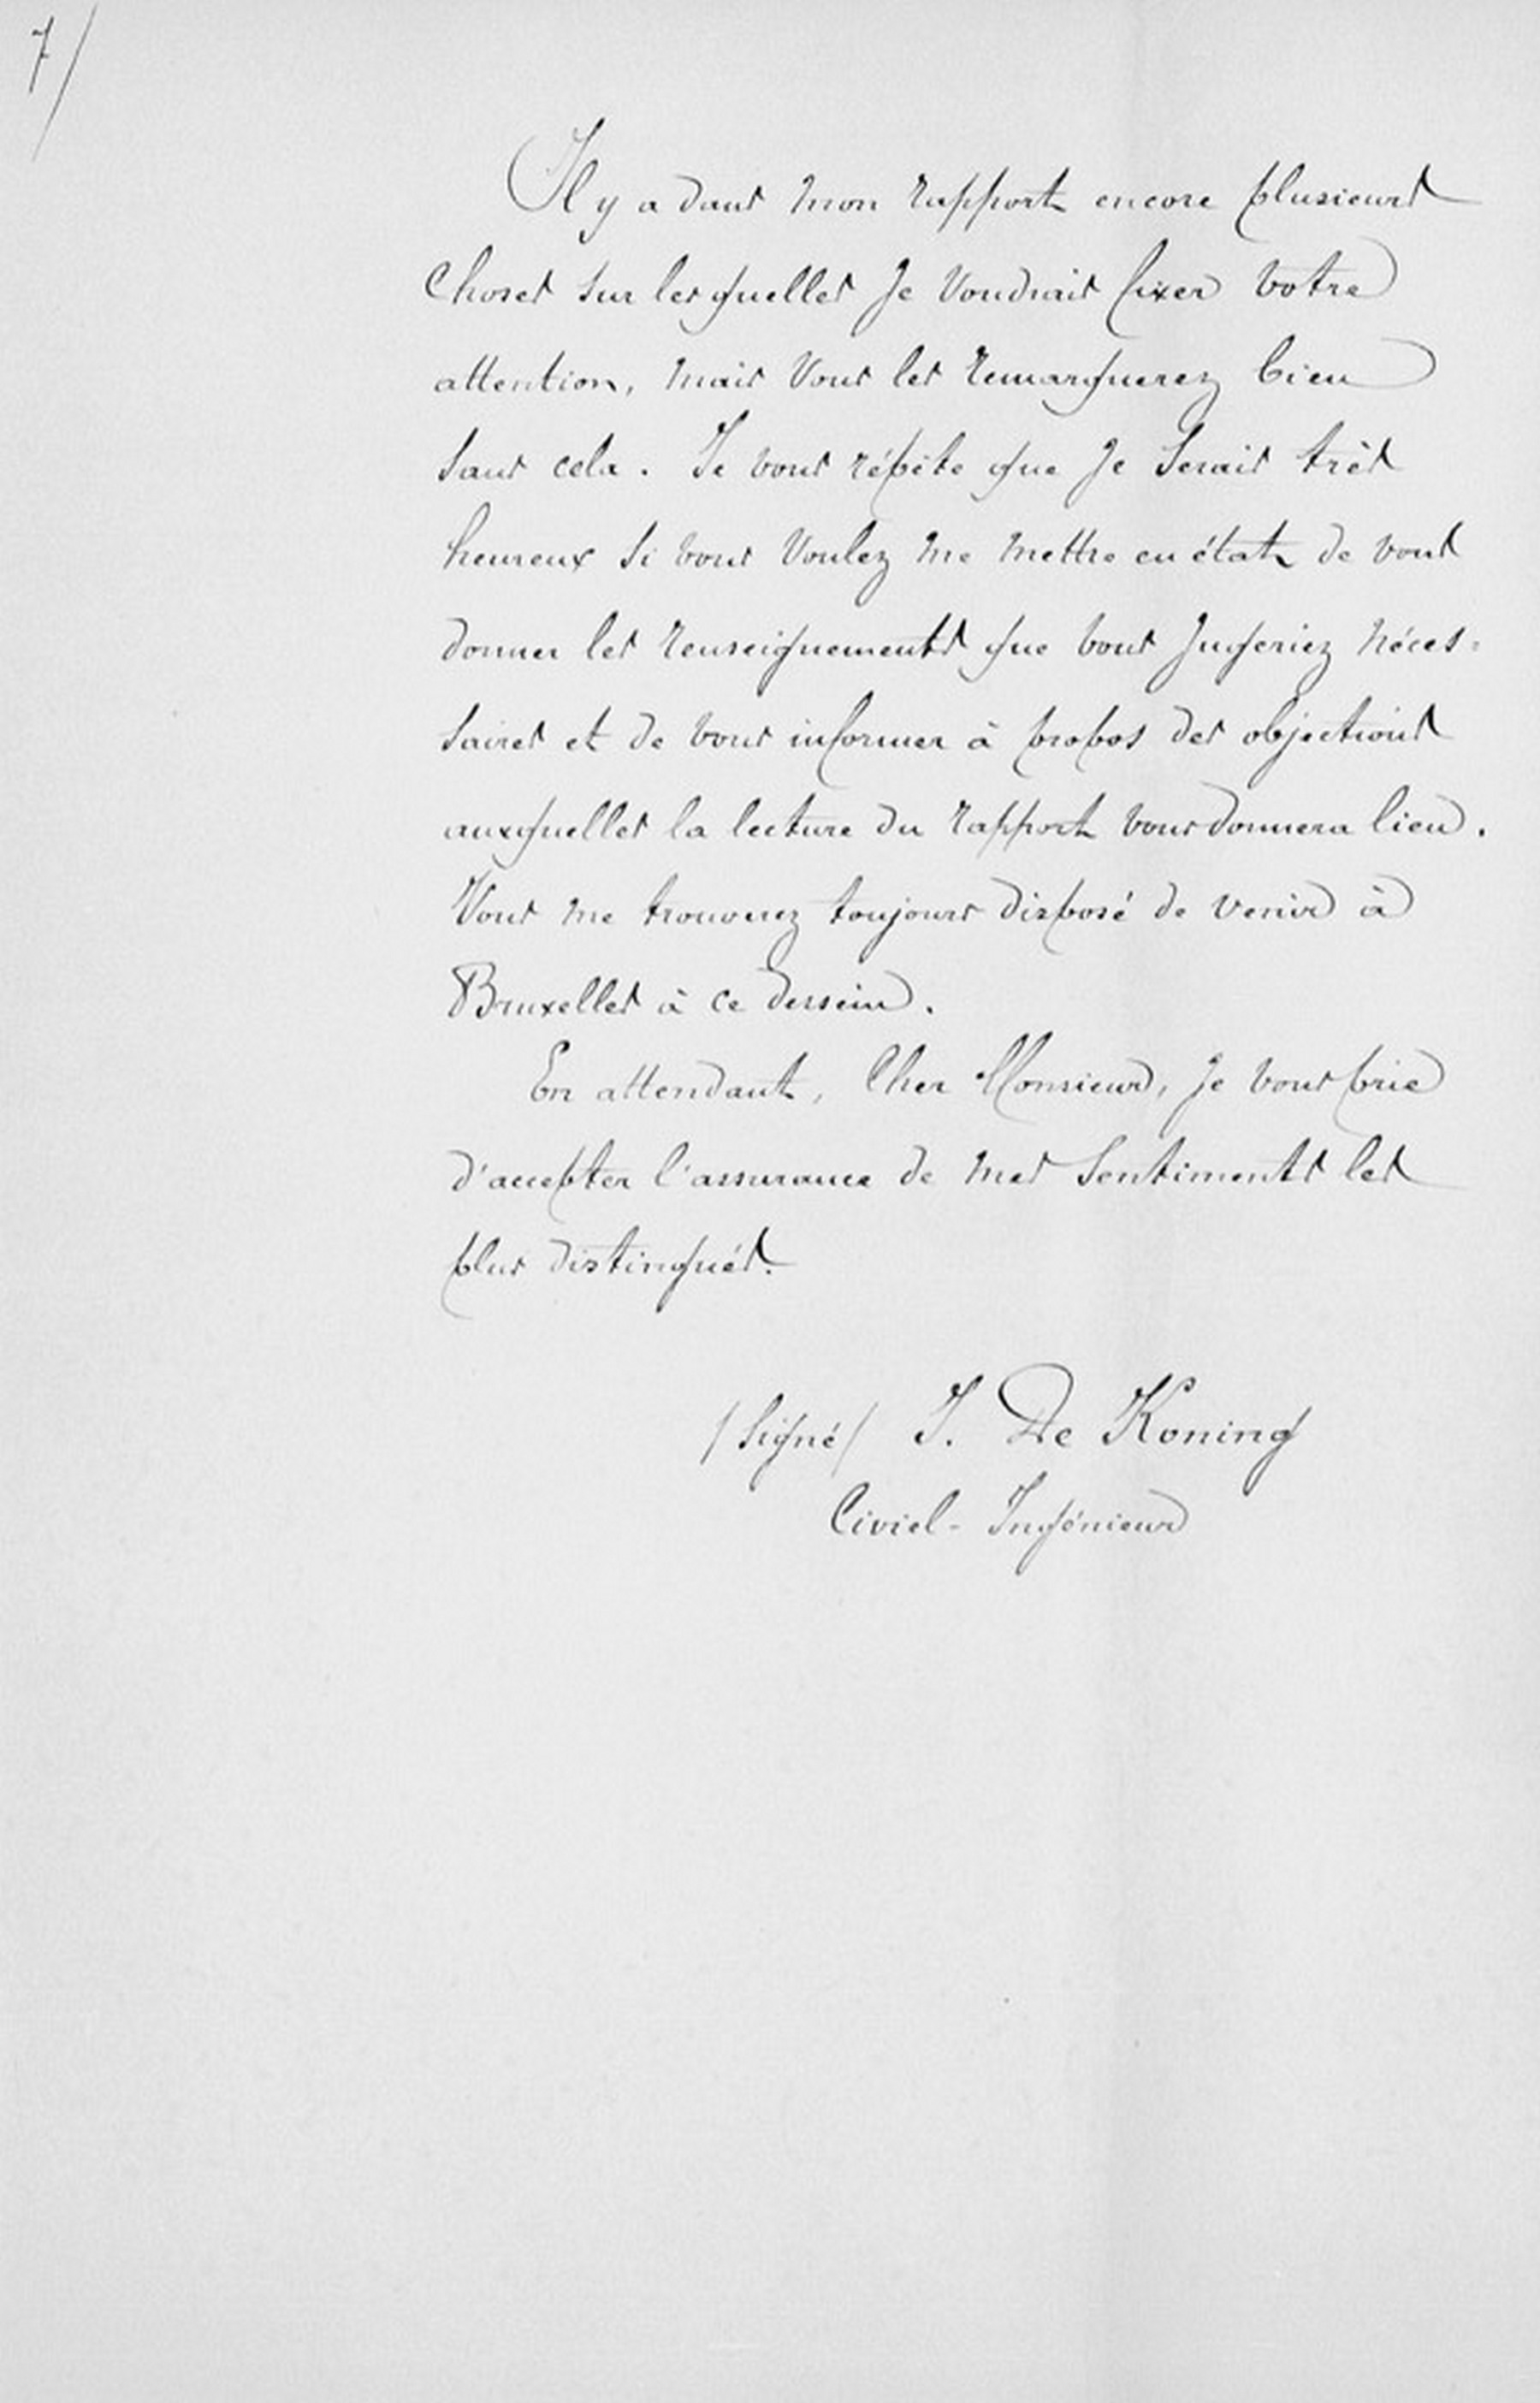 7/
Il y a dans mon rapport encore plusieurs
choses sur lesquelles je voudrais fixer votre
attention, mais vous les remarquerez bien
sans cela. Je vous répète que je serais très
heureux si vous voulez me mettre en état de vous
donner les renseignements que vous jugeriez néces=
saires et de vous informer à propos des objections
auxquelles la lecture du rapport vous donnera lieu.
Vous me trouverez toujours disposé de venir à
Bruxelles à ce dessein.
En attendant, Cher Monsieur, je vous prie
d'accepter l'assurance de mes sentiments les
plus distingués.
/signé/ J. De Koning
Civiel-Ingénieur